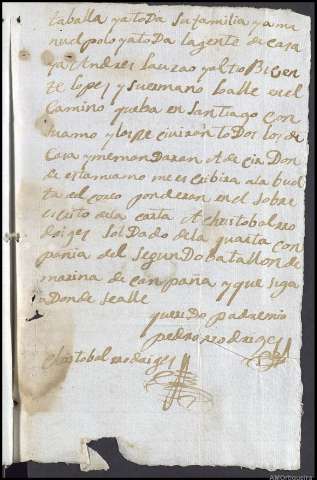 taballa yatoDa Su familia yama
nuel polo yatoDa lagente de casa
yaAndres Lauzao yaltoBicen
te lopez y Suermano
Camino queba en Santiago con
Suamo
Casa ymemandaran A deCia Don
de estamano me escribira ala buel
ta el coreo ponderan en el Sobre
escrito dela carta A christobal ro
driges Soldado dela quarta con
pania del Segundo batallon de
marina de conpaña y que Siga
aDonde Sealle
querido padre mio
pedro rodriges
christobal rodriges
AMOroqueira